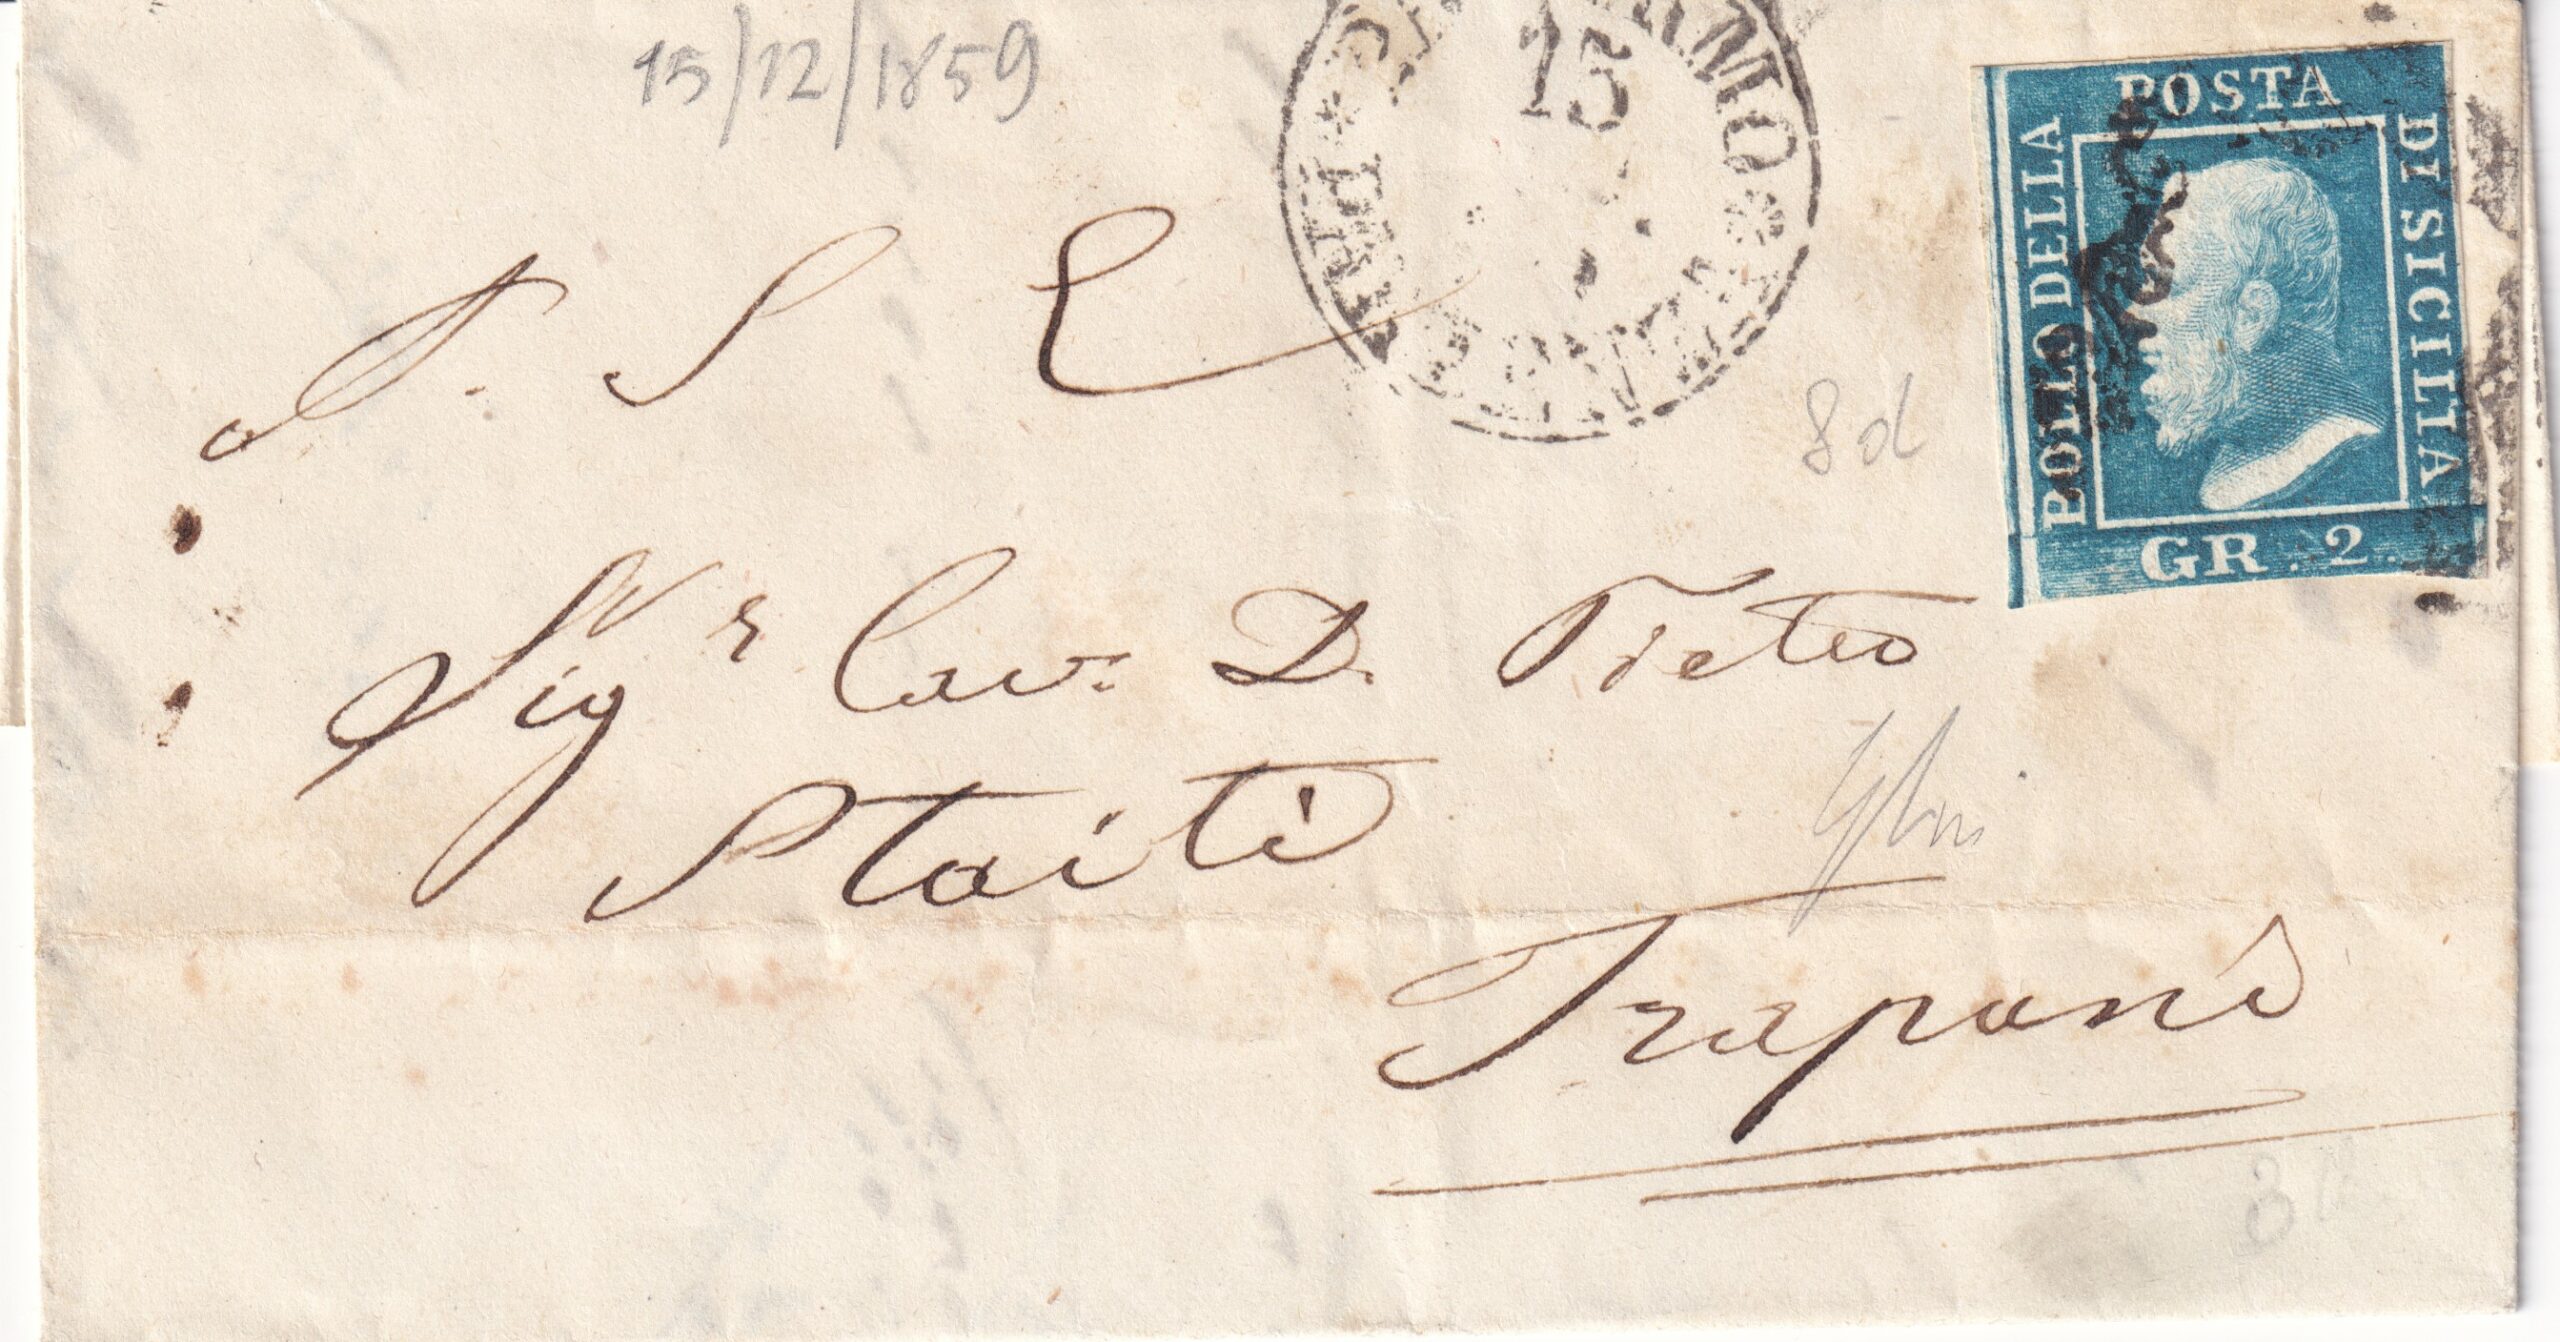 15/12/1859
15
POSTA
BOLLO DELLA
DI SICILIA
GR. 2.
A. S. E.
8d
Sigr Cav: D. Pietro
Staiti
Trapani